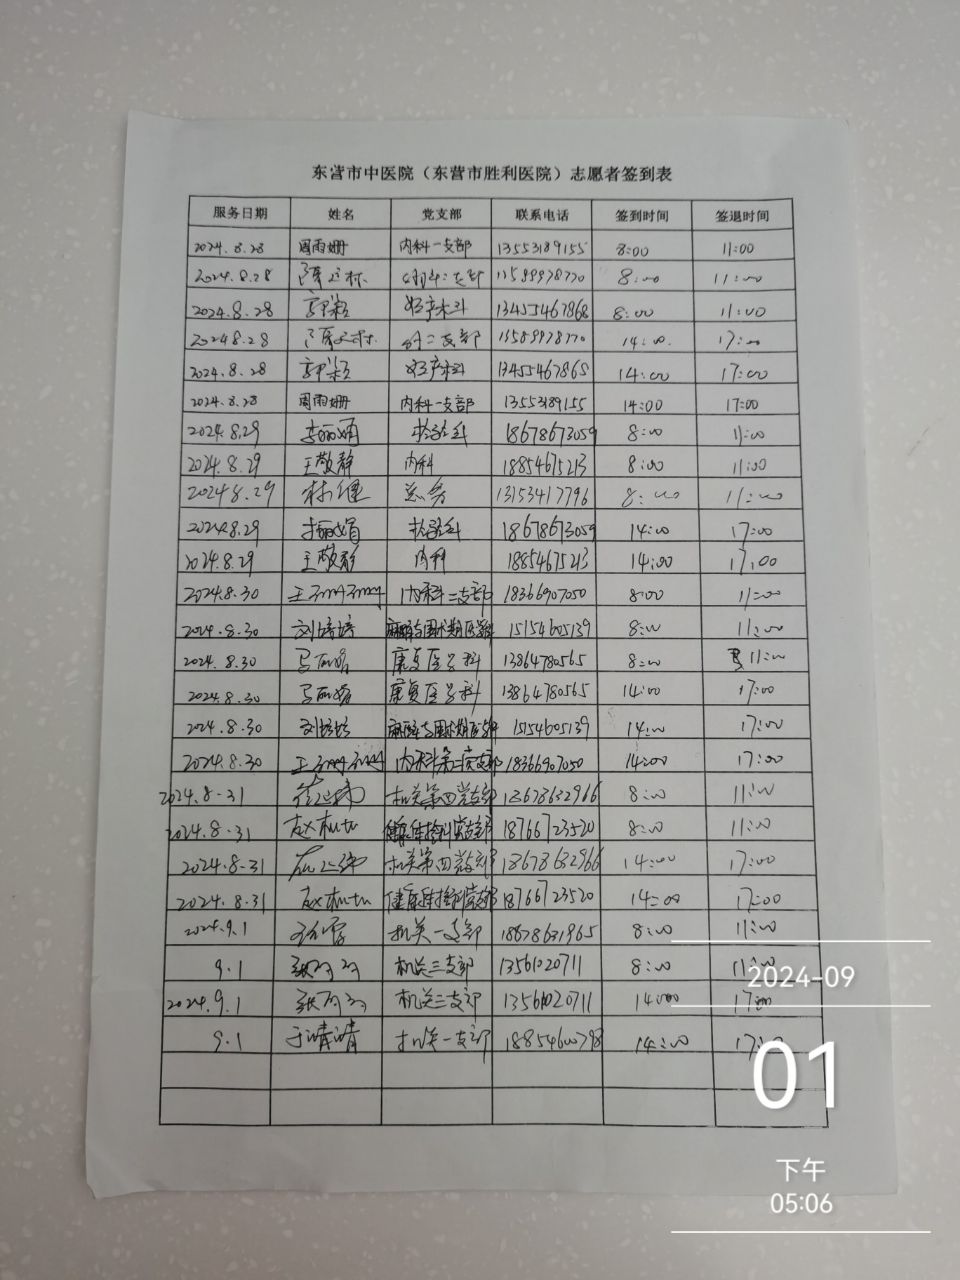 东营市中医院（东营市胜利医院）志愿者签到表
服务日期 姓名 党支部 联系电话 签到时间 签退时间
2024.8.28 周雨姗 内科一支部 13553189155 8:00 11:00
2024.8.28 8:00 11:00
2024.8.28 妇产科 13455467868 8:00 11:00
2024.8.28 14:00 17:00
2024.8.28 妇产科 13455467868 14:00 17:00
2024.8.28 周雨姗 内科一支部 13553189155 14:00 17:00
2024.8.29 李丽娟 检验科 18678673059 8:00 11:00
2024.8.29 王敬静 内科 18854675213 8:00 11:00
2024.8.29 林健 总务 13153417796 8:00 11:00
2024.8.29 李丽娟 检验科 18678673059 14:00 17:00
2024.8.29 王敬静 内科 18854675213 14:00 17:00
2024.8.30 王 内科二支部 18366907050 8:00 11:00
2024.8.30 刘培培 15154605139 8:00 11:00
2024.8.30 康复医学科 13864780565 8:00 11:00
2024.8.30 康复医学科 13864780565 14:00 17:00
2024.8.30 刘培培 15154605139 14:00 17:00
2024.8.30 王 内科第二党支部 18366907050 14:00 17:00
2024.8.31 机关第四党支部 18678632966 8:00 11:00
2024.8.31 18766723520 8:00 11:00
2024.8.31 机关第四党支部 18678632966 14:00 17:00
2024.8.31 18766723520 14:00 17:00
2024.9.1 机关一支部 18678631965 8:00 11:00
9.1 机关三支部 13561020711 8:00 11:00
2024.9.1 机关三支部 13561020711 14:00 17:00
9.1 于靖靖 机关一支部 18854600798 14:00 17:00
2024-09
01
下午
05:06